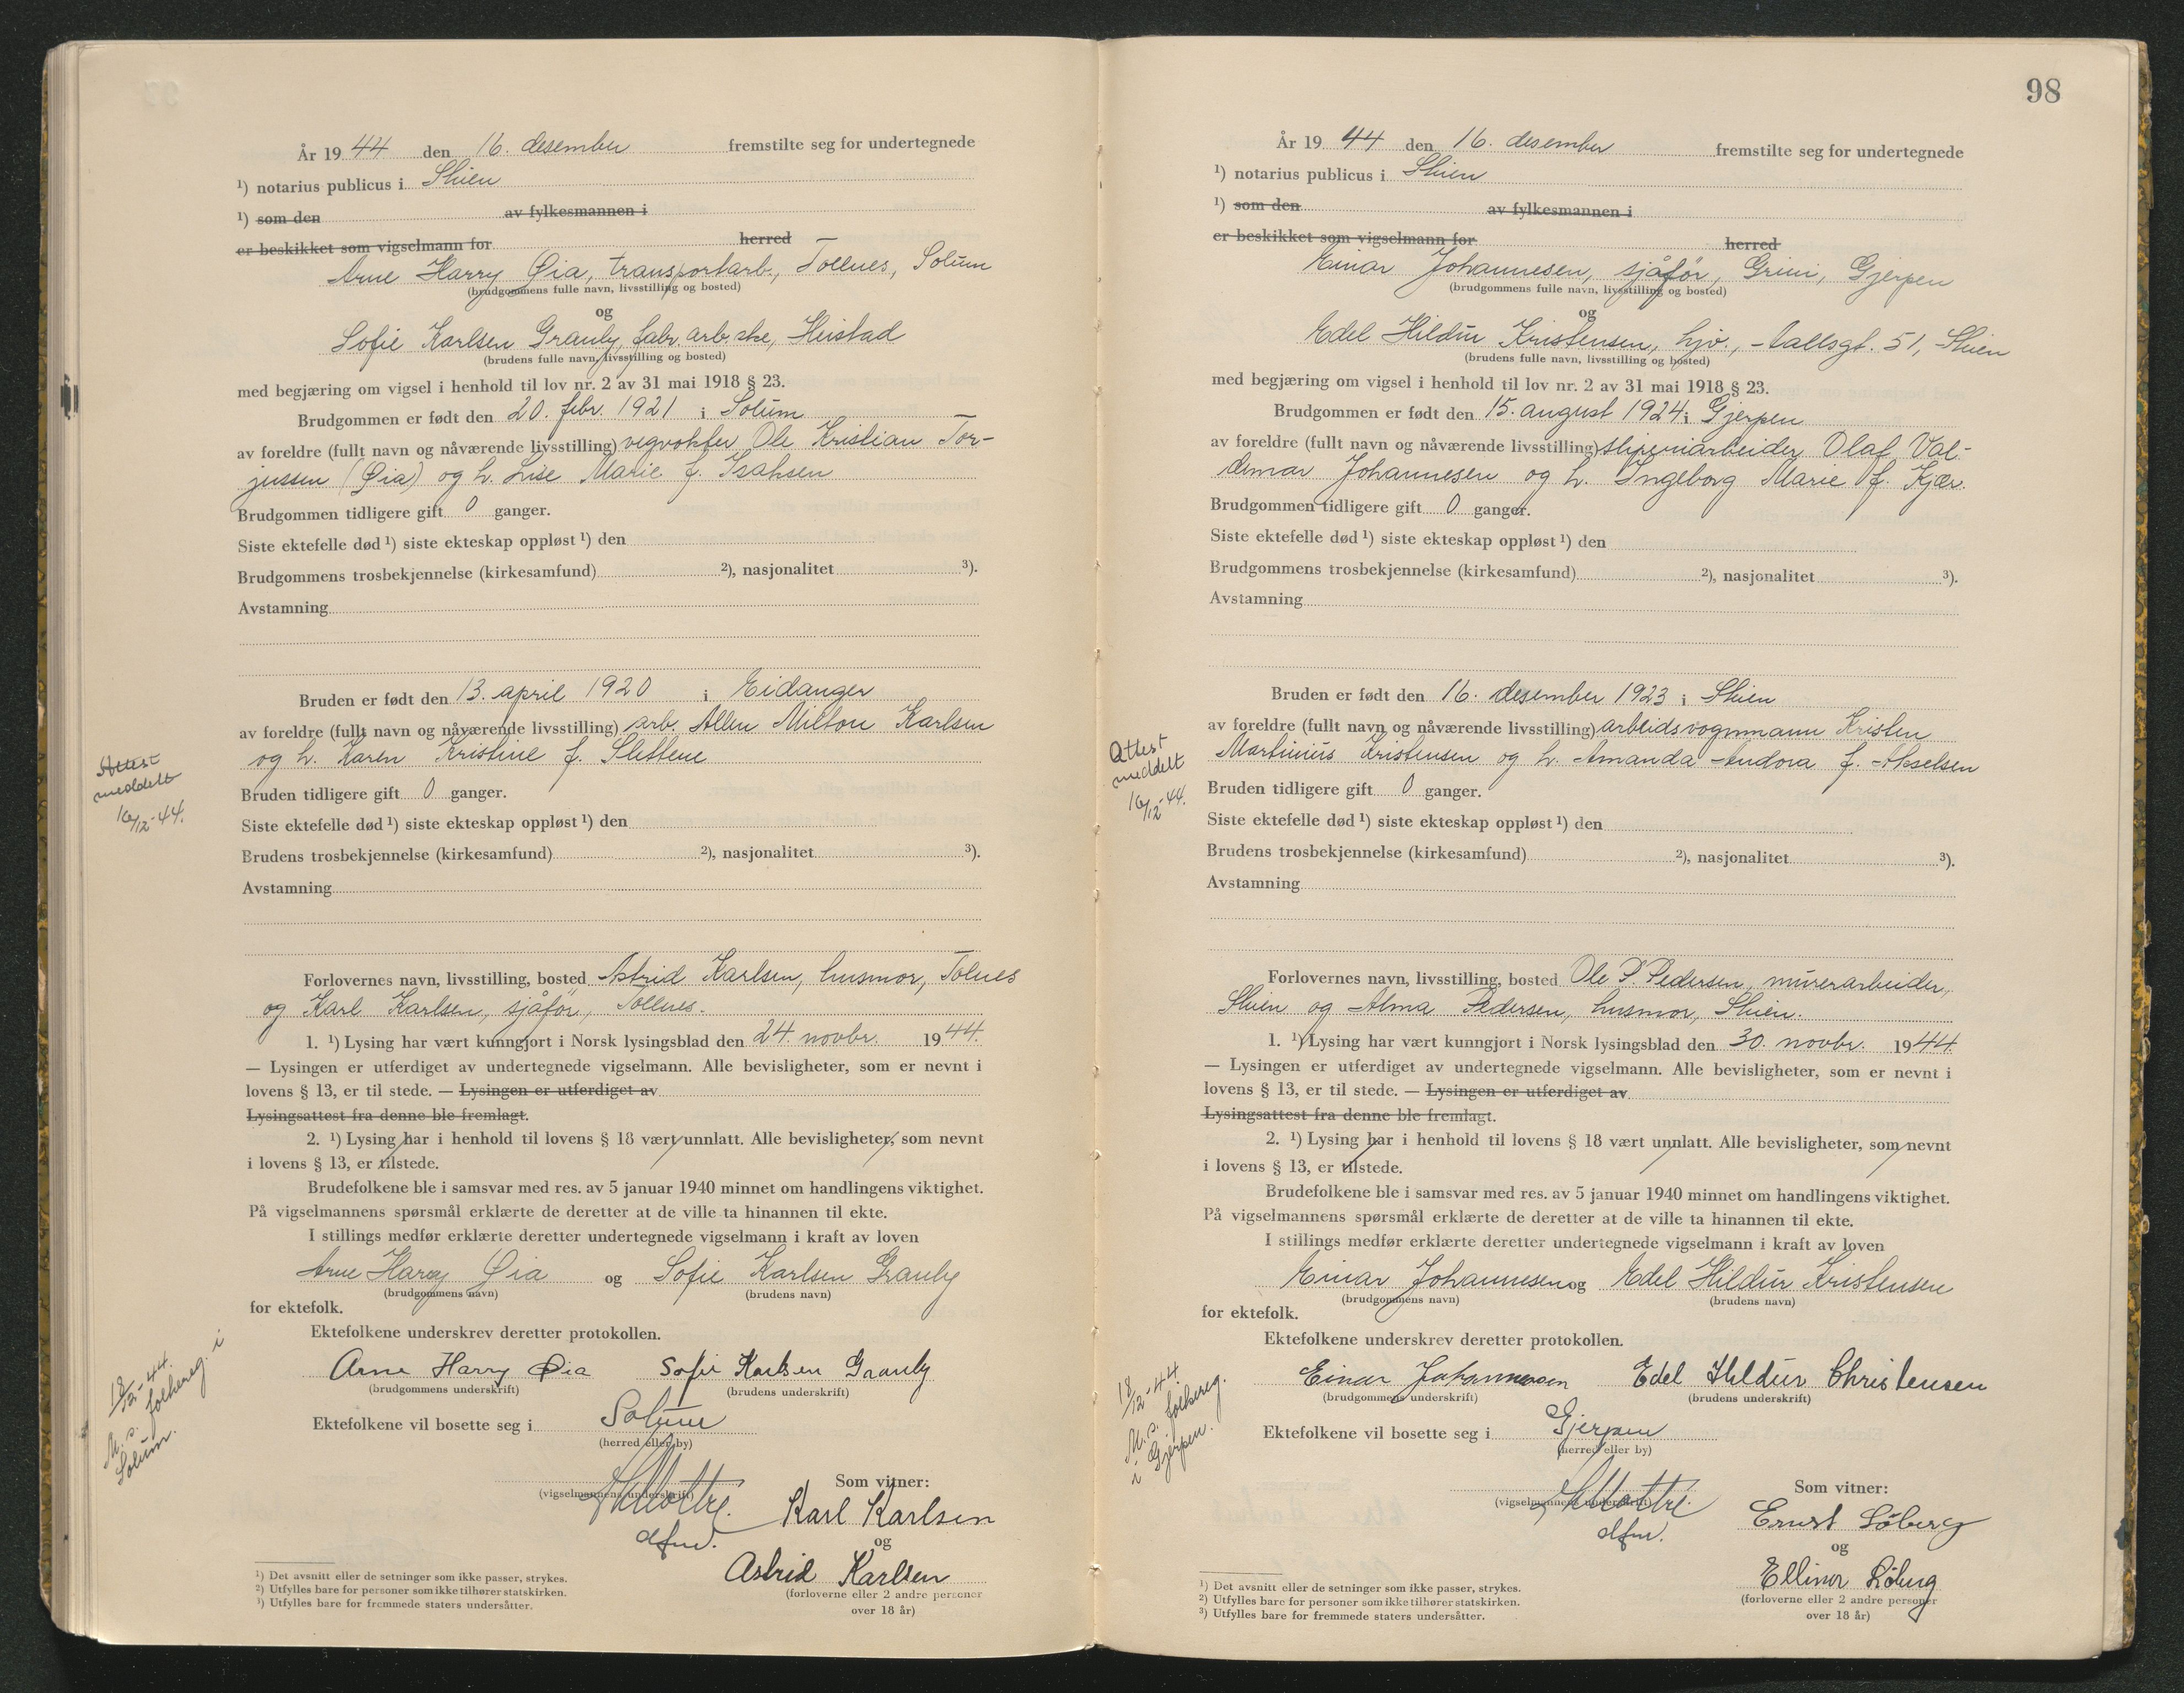 År 19 44 den 16. desember fremstilte seg for undertegnede
¹) notarius publicus i Skien
¹) som den av fylkesmannen i
er beskikket som vigselmann for herred
Arne Harry Øia, transportarb., Tollnes, Solum
(brudgommens fulle navn, livsstilling og bosted)
og
Sofie Karlsen Grauby, fabr.arb.ske, Heistad
(brudens fulle navn, livsstilling og bosted)
med begjæring om vigsel i henhold til lov nr. 2 av 31 mai 1918 § 23.
Brudgommen er født den 20. febr. 1921 i Solum
av foreldre (fullt navn og nåværende livsstilling) vegvokter Ole Kristian Tor-
jussen (Øia) og h. Lise Marie f. Isaksen
Brudgommen tidligere gift 0 ganger.
Siste ektefelle død ¹) siste ekteskap oppløst ¹) den
Brudgommens trosbekjennelse (kirkesamfund) ²), nasjonalitet ³).
Avstamning
Bruden er født den 13. april 1920 i Eidanger
av foreldre (fullt navn og nåværende livsstilling) arb. Allen Milton Karlsen
og h. Karen Kristine f. Slettene
Attest
meddelt
16/12-44.
Bruden tidligere gift 0 ganger.
Siste ektefelle død ¹) siste ekteskap oppløst ¹) den
Brudens trosbekjennelse (kirkesamfund) ²), nasjonalitet ³).
Avstamning
Forlovernes navn, livsstilling, bosted Astrid Karlsen, husmor, Tolnes
og Karl Karlsen, sjåför, Tollnes.
1. ¹) Lysing har vært kunngjort i Norsk lysingsblad den 24. novbr. 19 44.
— Lysingen er utferdiget av undertegnede vigselmann. Alle bevisligheter, som er nevnt i
lovens § 13, er til stede. — Lysingen er utferdiget av
Lysingsattest fra denne ble fremlagt.
2. ¹) Lysing har i henhold til lovens § 18 vært unnlatt. Alle bevisligheter, som nevnt
i lovens § 13, er tilstede.
Brudefolkene ble i samsvar med res. av 5 januar 1940 minnet om handlingens viktighet.
På vigselmannens spørsmål erklærte de deretter at de ville ta hinannen til ekte.
I stillings medfør erklærte deretter undertegnede vigselmann i kraft av loven
Arne Harry Øia og Sofie Karlsen Grauby
(brudgommens navn) (brudens navn)
for ektefolk.
Ektefolkene underskrev deretter protokollen.
Arne Harry Øia Sofie Karlsen Grauby
(brudgommens underskrift) (brudens underskrift)
18/12-44.
M. s. folkereg. i
Solum.
Ektefolkene vil bosette seg i Solum
(herred eller by)
Som vitner:
(vigselmannens underskrift)
dfm.
Karl Karlsen
og
Astrid Karlsen
(forloverne eller 2 andre personer
over 18 år)
¹) Det avsnitt eller de setninger som ikke passer, strykes.
²) Utfylles bare for personer som ikke tilhører statskirken.
³) Utfylles bare for fremmede staters undersåtter.
98
År 19 44 den 16. desember fremstilte seg for undertegnede
¹) notarius publicus i Skien
¹) som den av fylkesmannen i
er beskikket som vigselmann for herred
Einar Johannesen, sjåför, Grini, Gjerpen
(brudgommens fulle navn, livsstilling og bosted)
og
Edel Hildur Kristensen, hjv., Aallsgt. 51, Skien
(brudens fulle navn, livsstilling og bosted)
med begjæring om vigsel i henhold til lov nr. 2 av 31 mai 1918 § 23.
Brudgommen er født den 15. august 1924 i Gjerpen
av foreldre (fullt navn og nåværende livsstilling) sliperiarbeider Olaf Val-
demar Johannesen og h. Ingeborg Marie f. Kjær.
Brudgommen tidligere gift 0 ganger.
Siste ektefelle død ¹) siste ekteskap oppløst ¹) den
Brudgommens trosbekjennelse (kirkesamfund) ²), nasjonalitet ³).
Avstamning
Bruden er født den 16. desember 1923 i Skien
av foreldre (fullt navn og nåværende livsstilling) arbeidsvognmann Kristen
Martinius Kristensen og h. Amanda Andora f. Akselsen
Attest
meddelt
16/12-44.
Bruden tidligere gift 0 ganger.
Siste ektefelle død ¹) siste ekteskap oppløst ¹) den
Brudens trosbekjennelse (kirkesamfund) ²), nasjonalitet ³).
Avstamning
Forlovernes navn, livsstilling, bosted Ole P. Pedersen, murerarbeider,
Skien og Alma Pedersen, husmor, Skien.
1. ¹) Lysing har vært kunngjort i Norsk lysingsblad den 30. novbr. 19 44.
— Lysingen er utferdiget av undertegnede vigselmann. Alle bevisligheter, som er nevnt i
lovens § 13, er til stede. — Lysingen er utferdiget av
Lysingsattest fra denne ble fremlagt.
2. ¹) Lysing har i henhold til lovens § 18 vært unnlatt. Alle bevisligheter, som nevnt
i lovens § 13, er tilstede.
Brudefolkene ble i samsvar med res. av 5 januar 1940 minnet om handlingens viktighet.
På vigselmannens spørsmål erklærte de deretter at de ville ta hinannen til ekte.
I stillings medfør erklærte deretter undertegnede vigselmann i kraft av loven
Einar Johannesen og Edel Hildur Kristensen
(brudgommens navn) (brudens navn)
for ektefolk.
Ektefolkene underskrev deretter protokollen.
Einar Johannesen Edel Hildur Christensen
(brudgommens underskrift) (brudens underskrift)
18/12-44.
M. s. folkereg.
i Gjerpen.
Ektefolkene vil bosette seg i Gjerpen
(herred eller by)
Som vitner:
(vigselmannens underskrift)
dfm.
Ernst Löberg
og
Ellinor Löberg
(forloverne eller 2 andre personer
over 18 år)
¹) Det avsnitt eller de setninger som ikke passer, strykes.
²) Utfylles bare for personer som ikke tilhører statskirken.
³) Utfylles bare for fremmede staters undersåtter.